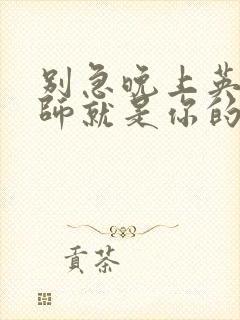 别急晚上英
师就是你的
贡茶